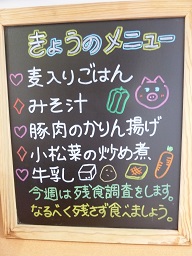 きょうのメニュー
♡麦入りごはん
◇みそ汁
♡豚肉のかりん揚げ
◇小松菜の炒め煮
♡牛乳
今週は残食調査をします。
なるべく残さず食べましょう。